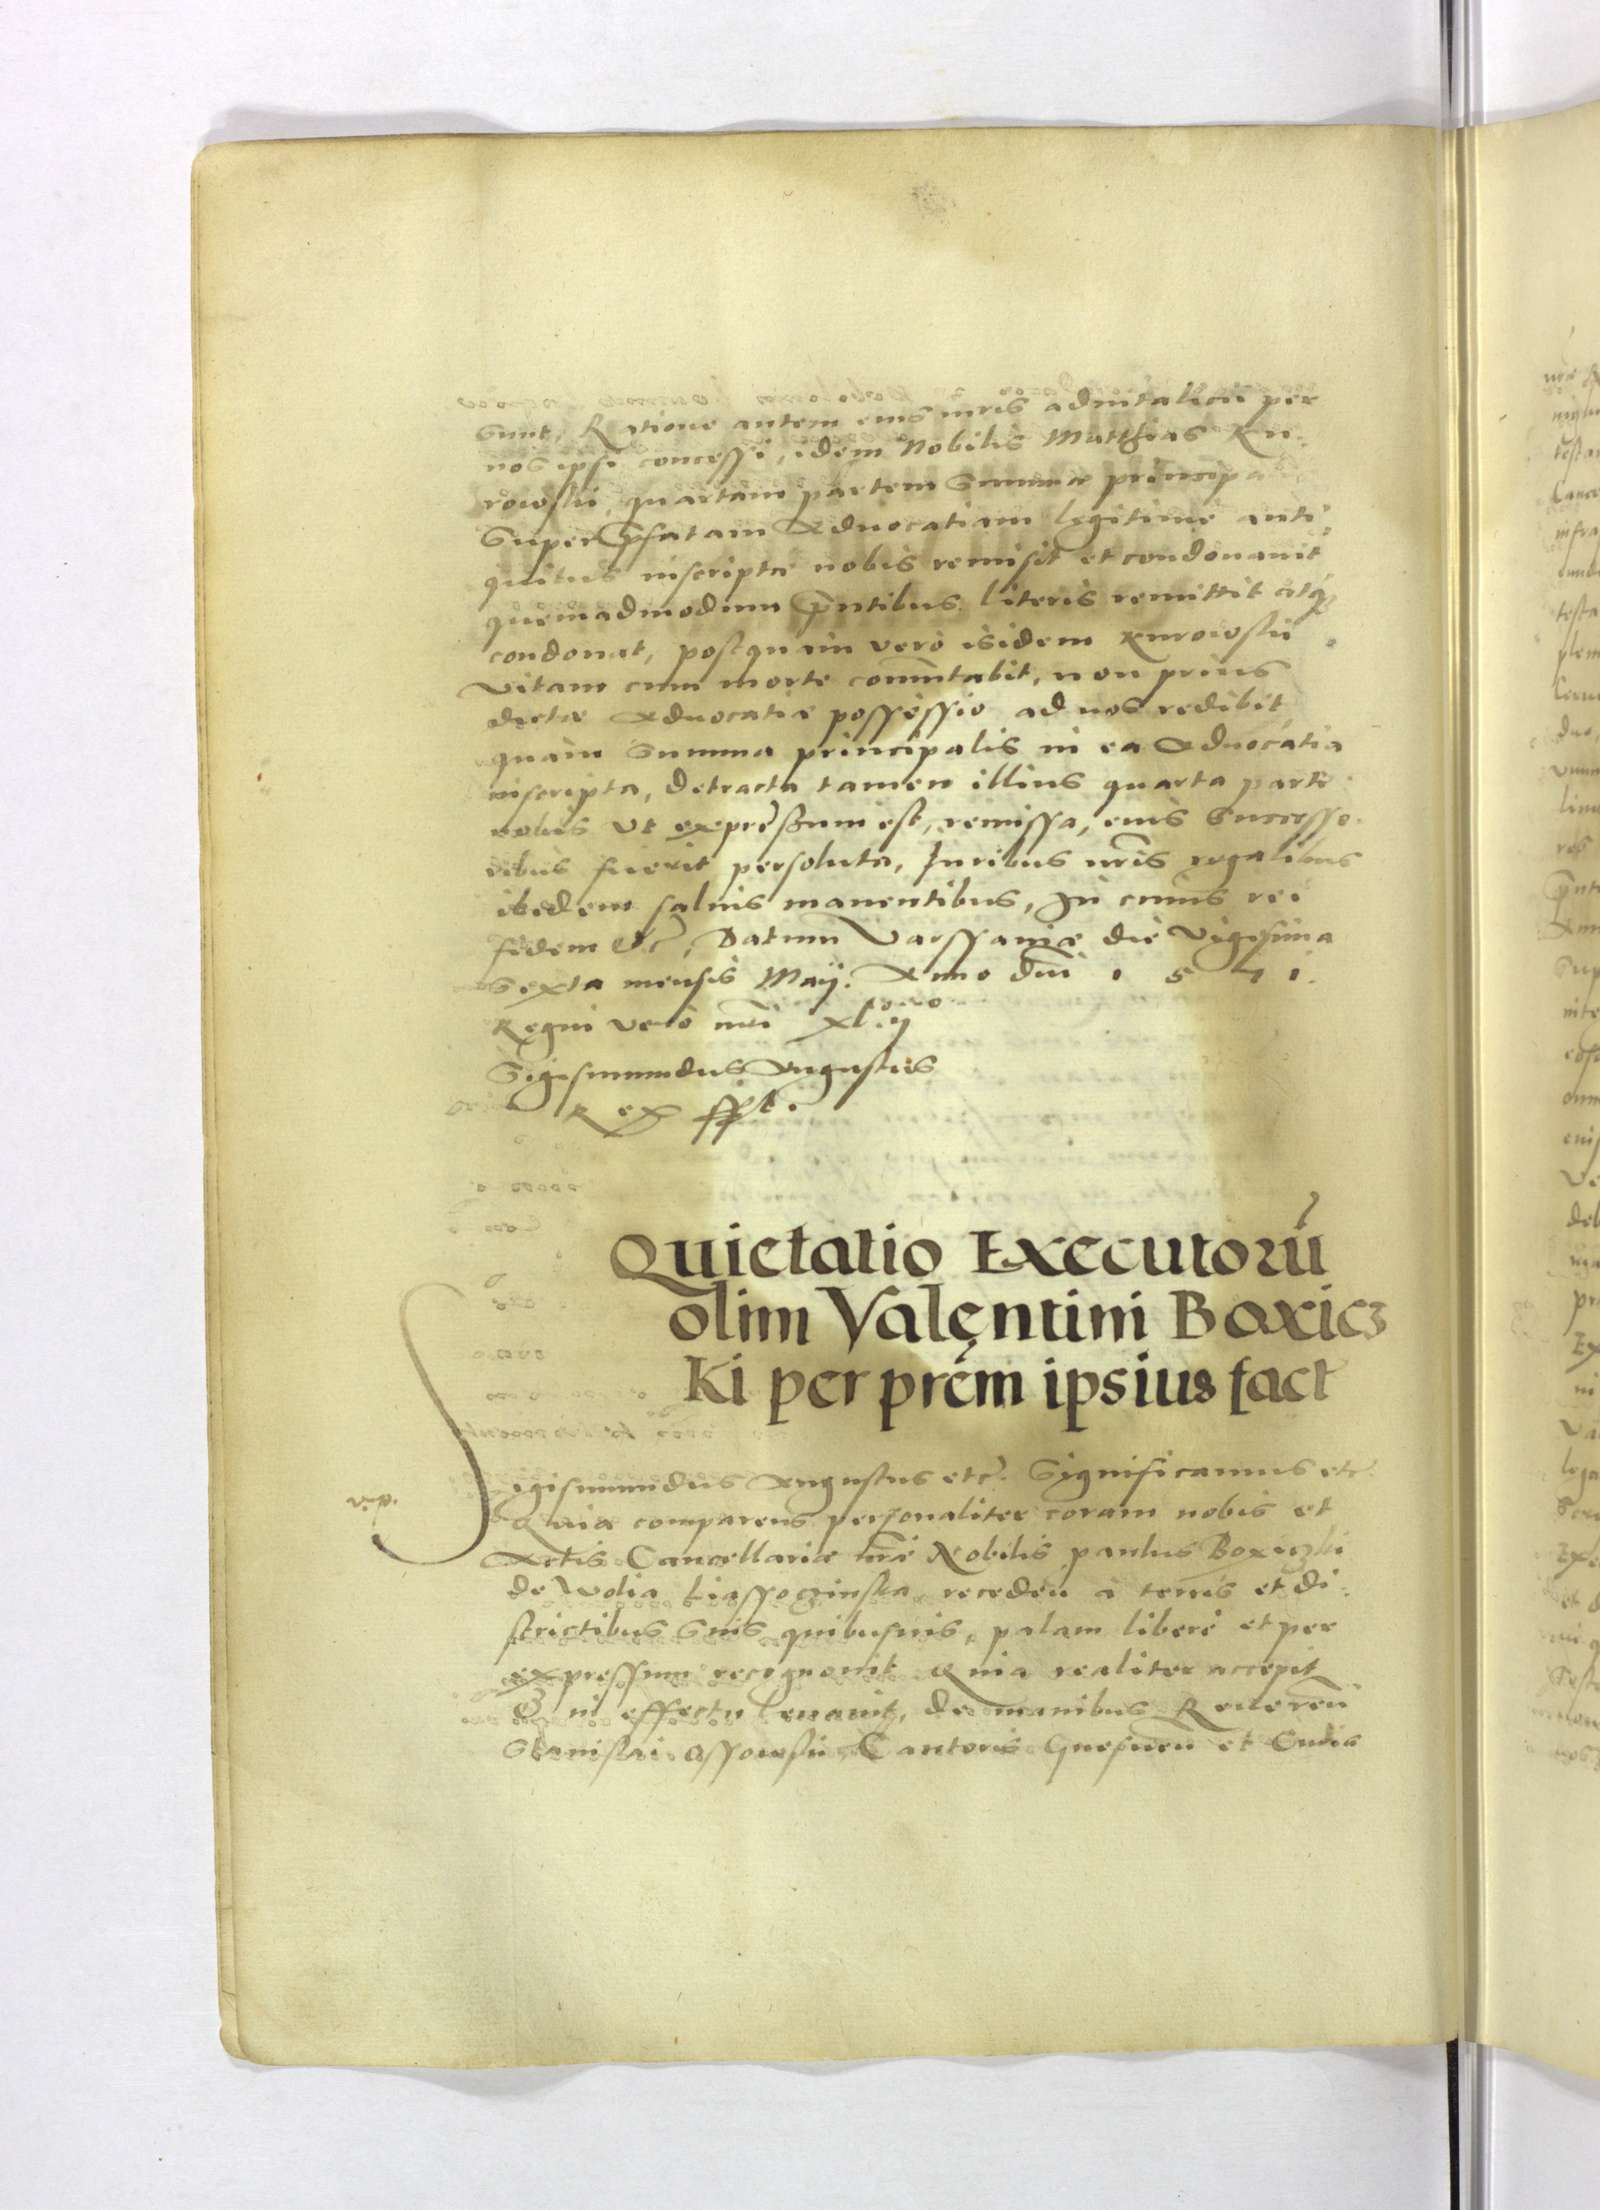 sunt, Ratione autem eius iuris aduitalicii per
nos ipsi concessi, idem Nobilis Matthias Ku-
rowskii, quartam partem summæ principa
super pfatam Aduocatiam legitime anti-
quitus inscriptæ nobis remisit et condonauit
quemadmodum pntibus literis remittit atq;
condonat, postquam vero isidem Kurowskii
vitam cum morte commutabit, non prius
dictæ Aduocatiæ possessio ad nos redibit
quam summa principalis in ea Aduocatia
inscripta, detracta tamen illius quarta parte
nobis Vt expressum est, remissa, eius successo-
ribus fuerit persoluta, Iuribus nris regalibus
ibedem saluis manentibus, In cuius rei
fidem Etc, Datum Varssauiæ die Vigesima
sexta mensis Maij. Anno dni 1 5 7 1.
Regni vero nri xlij
Sigismundus Augustus
Rex sspt.
Quietatio Executorū
olim Valentini Boxicz
Ki per prēm ipsius fact
Sigismundus Augustus etc. Significamus etc.
Quia comparens personaliter coram nobis et
Actis Cancellariæ nræ Nobilis paulus Boxiczki
de Wolia Liassoczinska, receden a terris et di-
strictibus suis quibusuis, palam libere et per
expressum recognouit Quia realiter accepit
Et in effectu leuauit, de manibus Reueren
Stanislai Ossowskii Cantoris Gnesnen et Custo